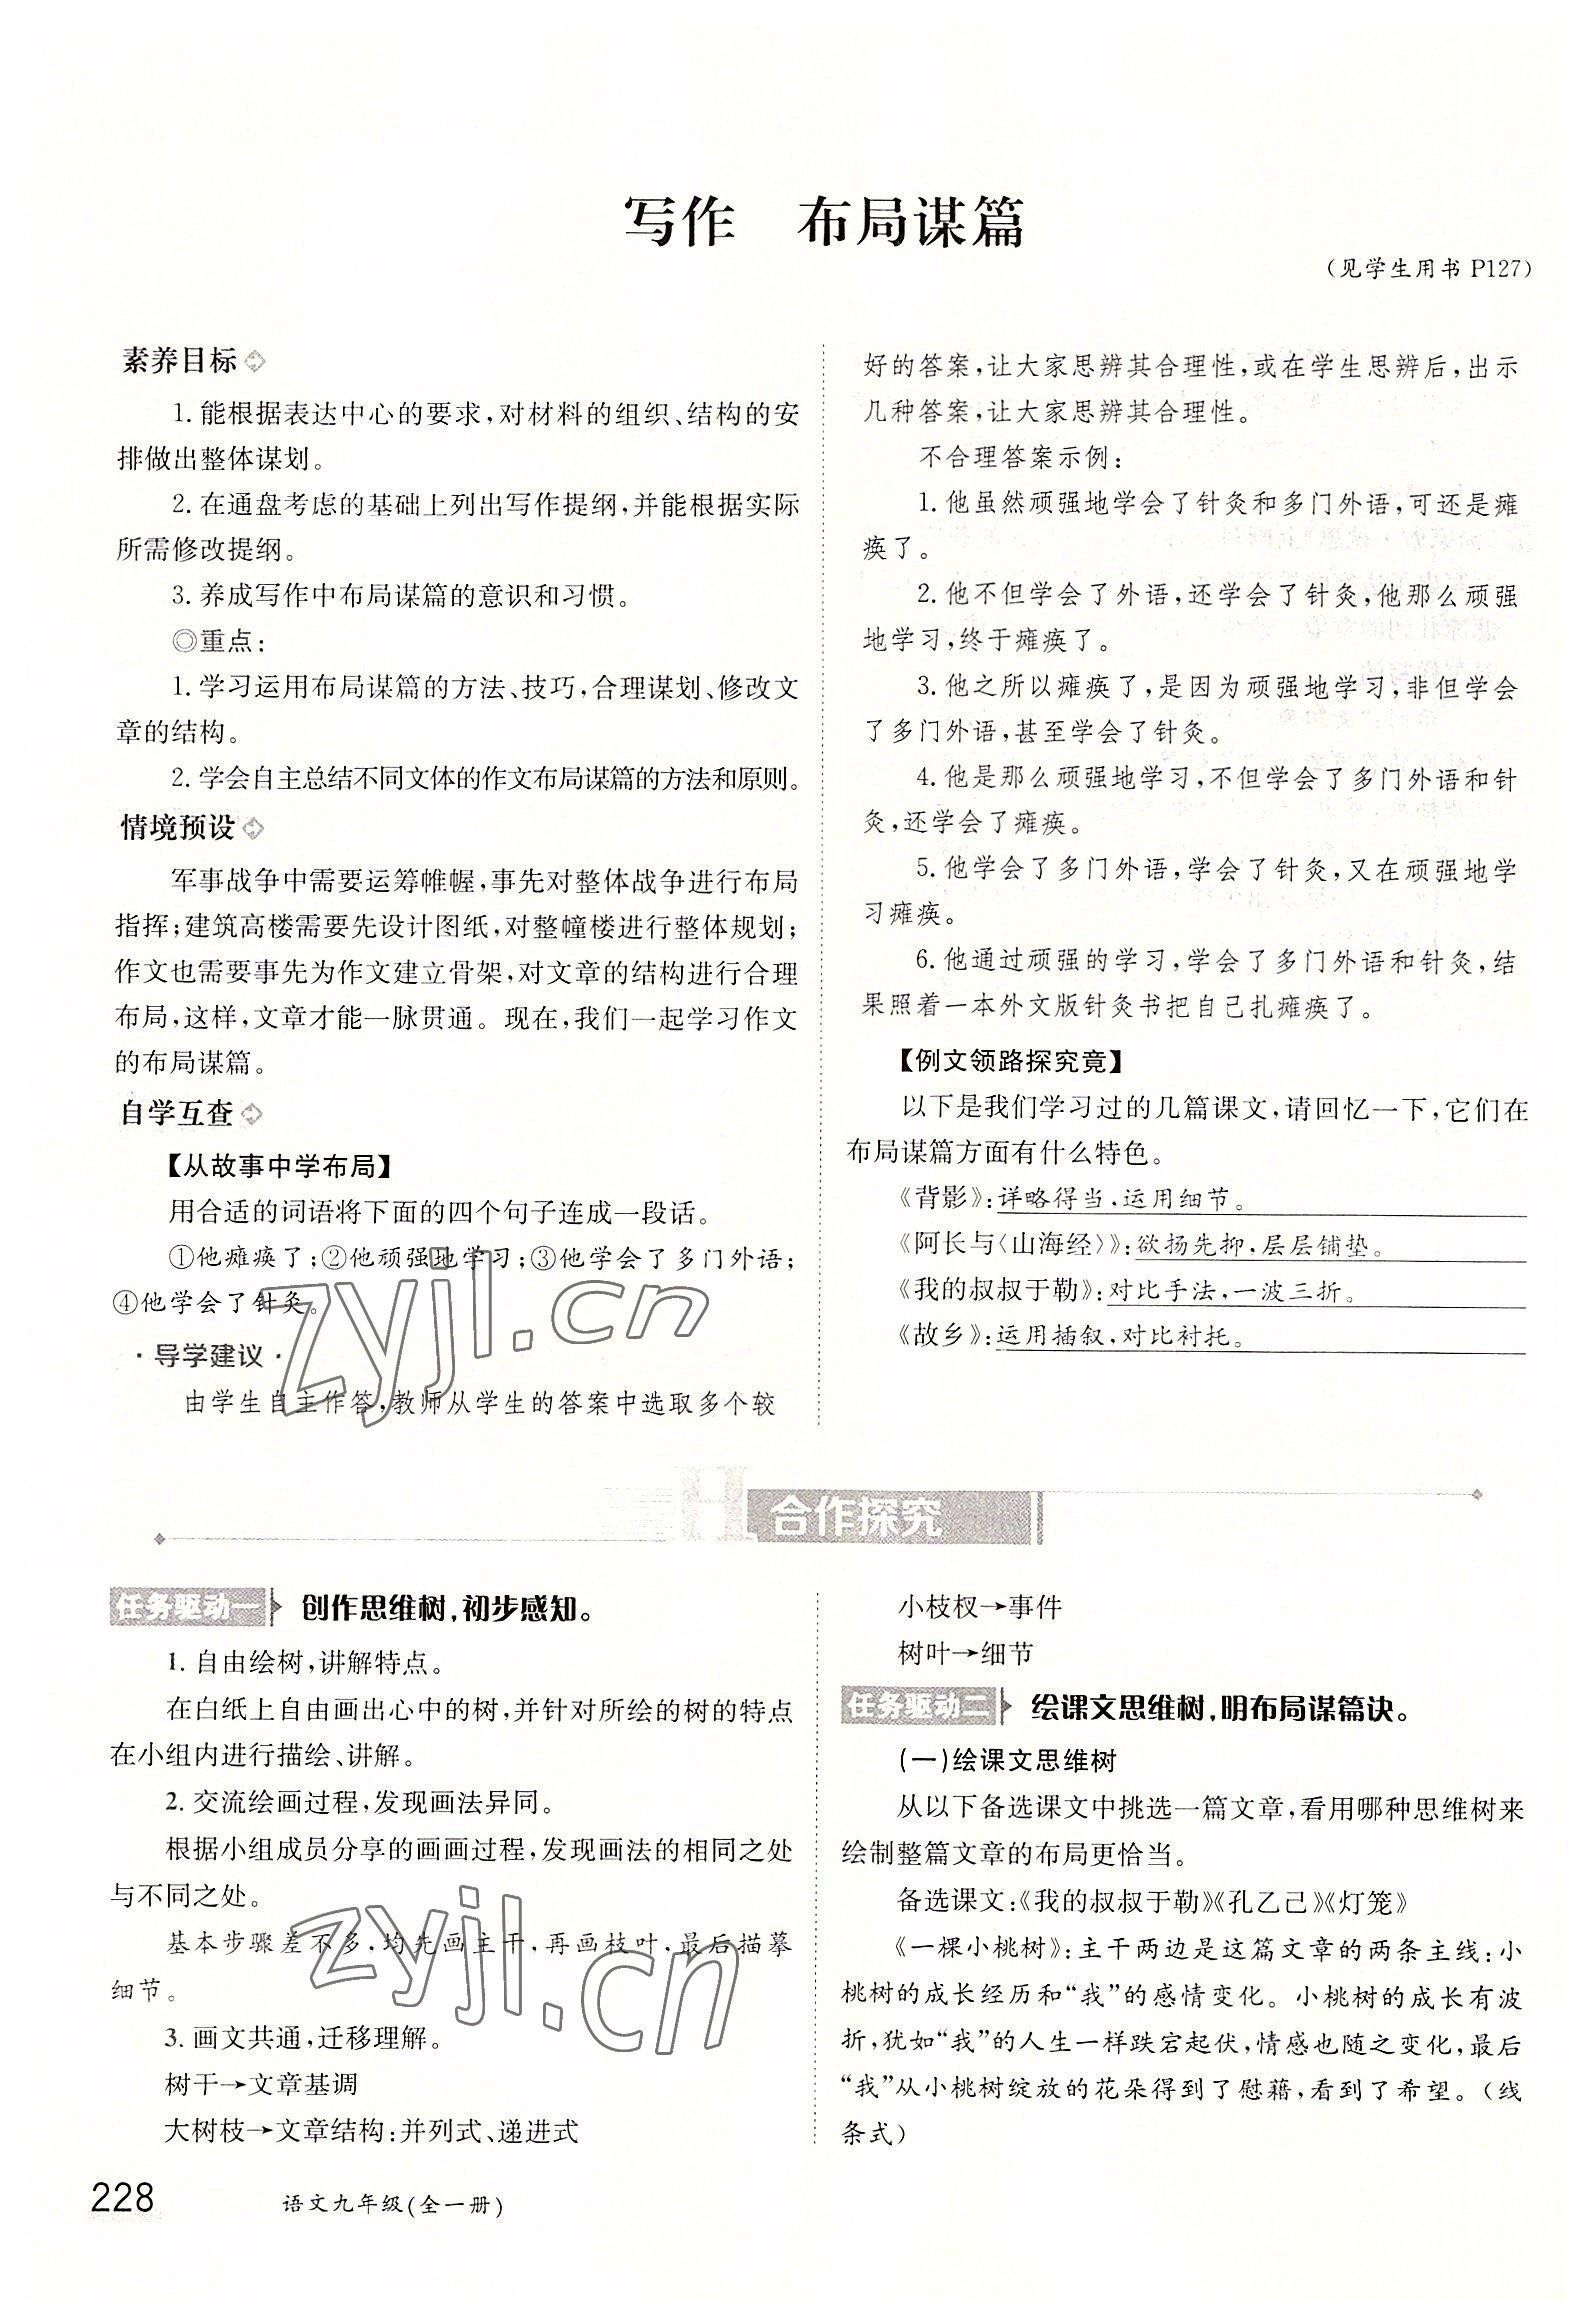 写作　布局谋篇
(见学生用书 P127)
素养目标
1. 能根据表达中心的要求,对材料的组织、结构的安
排做出整体谋划。
2. 在通盘考虑的基础上列出写作提纲,并能根据实际
所需修改提纲。
3. 养成写作中布局谋篇的意识和习惯。
◎重点:
1. 学习运用布局谋篇的方法、技巧,合理谋划、修改文
章的结构。
2. 学会自主总结不同文体的作文布局谋篇的方法和原则。
情境预设
军事战争中需要运筹帷幄,事先对整体战争进行布局
指挥;建筑高楼需要先设计图纸,对整幢楼进行整体规划;
作文也需要事先为作文建立骨架,对文章的结构进行合理
布局,这样,文章才能一脉贯通。现在,我们一起学习作文
的布局谋篇。
自学互查
【从故事中学布局】
用合适的词语将下面的四个句子连成一段话。
①他瘫痪了;②他顽强地学习;③他学会了多门外语;
④他学会了针灸。
·导学建议·
由学生自主作答,教师从学生的答案中选取多个较
好的答案,让大家思辨其合理性,或在学生思辨后,出示
几种答案,让大家思辨其合理性。
不合理答案示例:
1. 他虽然顽强地学会了针灸和多门外语,可还是瘫
痪了。
2. 他不但学会了外语,还学会了针灸,他那么顽强
地学习,终于瘫痪了。
3. 他之所以瘫痪了,是因为顽强地学习,非但学会
了多门外语,甚至学会了针灸。
4. 他是那么顽强地学习,不但学会了多门外语和针
灸,还学会了瘫痪。
5. 他学会了多门外语,学会了针灸,又在顽强地学
习瘫痪。
6. 他通过顽强的学习,学会了多门外语和针灸,结
果照着一本外文版针灸书把自己扎瘫痪了。
【例文领路探究竟】
以下是我们学习过的几篇课文,请回忆一下,它们在
布局谋篇方面有什么特色。
《背影》:详略得当,运用细节。
《阿长与〈山海经〉》:欲扬先抑,层层铺垫。
《我的叔叔于勒》:对比手法,一波三折。
《故乡》:运用插叙,对比衬托。
H 合作探究
任务驱动一 创作思维树,初步感知。
1. 自由绘树,讲解特点。
在白纸上自由画出心中的树,并针对所绘的树的特点
在小组内进行描绘、讲解。
2. 交流绘画过程,发现画法异同。
根据小组成员分享的画画过程,发现画法的相同之处
与不同之处。
基本步骤差不多,均先画主干,再画枝叶,最后描摹
细节。
3. 画文共通,迁移理解。
树干→文章基调
大树枝→文章结构:并列式、递进式
小枝杈→事件
树叶→细节
任务驱动二 绘课文思维树,明布局谋篇诀。
(一)绘课文思维树
从以下备选课文中挑选一篇文章,看用哪种思维树来
绘制整篇文章的布局更恰当。
备选课文:《我的叔叔于勒》《孔乙己》《灯笼》
《一棵小桃树》:主干两边是这篇文章的两条主线:小
桃树的成长经历和“我”的感情变化。小桃树的成长有波
折,犹如“我”的人生一样跌宕起伏,情感也随之变化,最后
“我”从小桃树绽放的花朵得到了慰藉,看到了希望。(线
条式)
228 语文九年级(全一册)
zyjl.cn
zyjl.cn